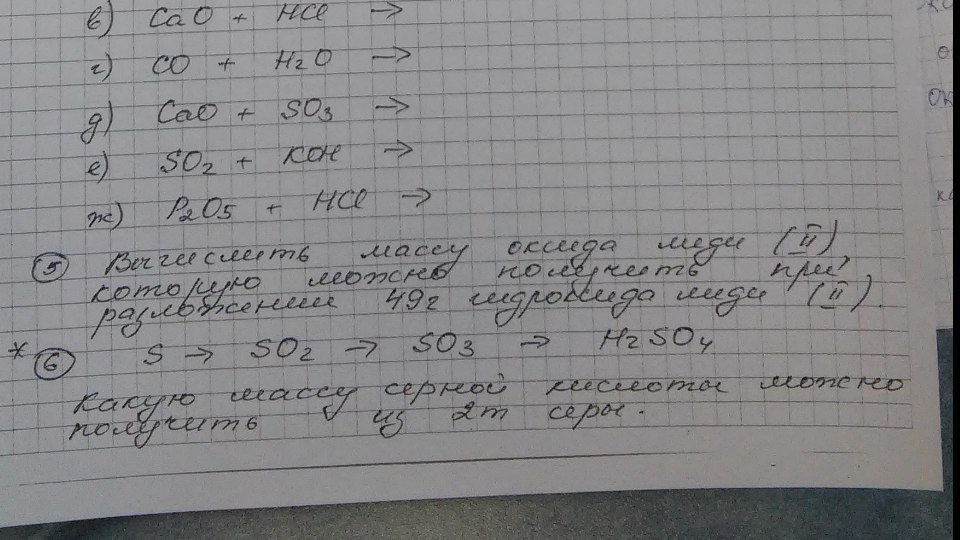 в) CaO + HCl →
г) CO + H2O →
д) CaO + SO3 →
е) SO2 + KOH →
ж) P2O5 + HCl →
5 Вычислить массу оксида меди (II)
которую можно получить при
разложении 49г гидроксида меди (II).
* 6 S → SO2 → SO3 → H2SO4
Какую массу серной кислоты можно
получить из 2т серы.